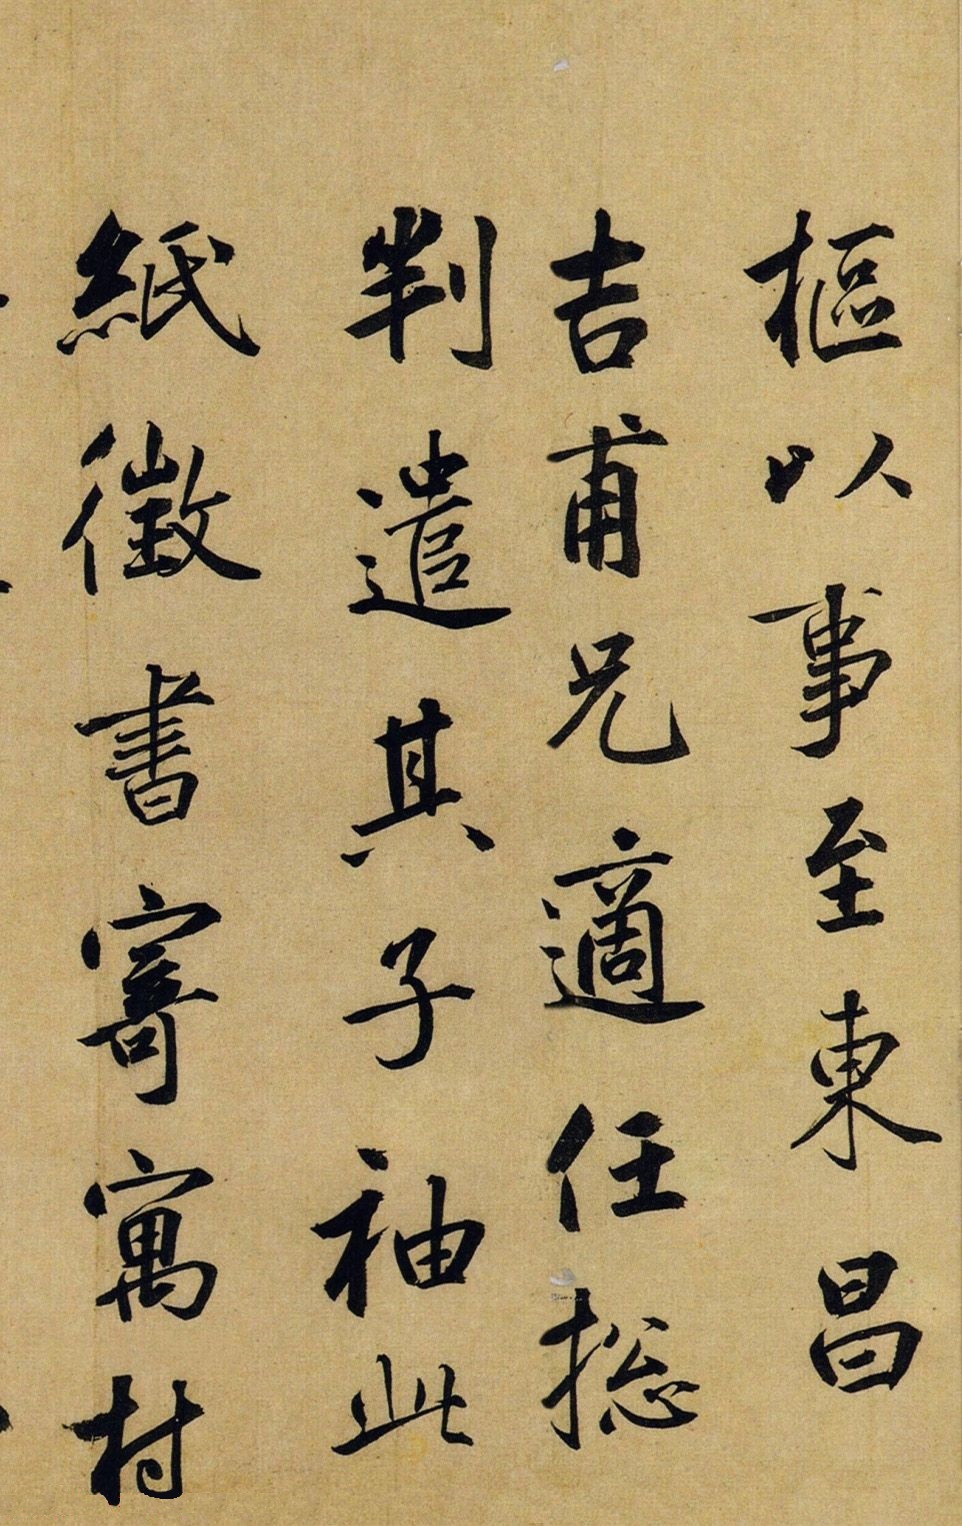 樞以事至東昌
吉甫兄適任揔
判遣其子袖此
紙徵書寄寓村